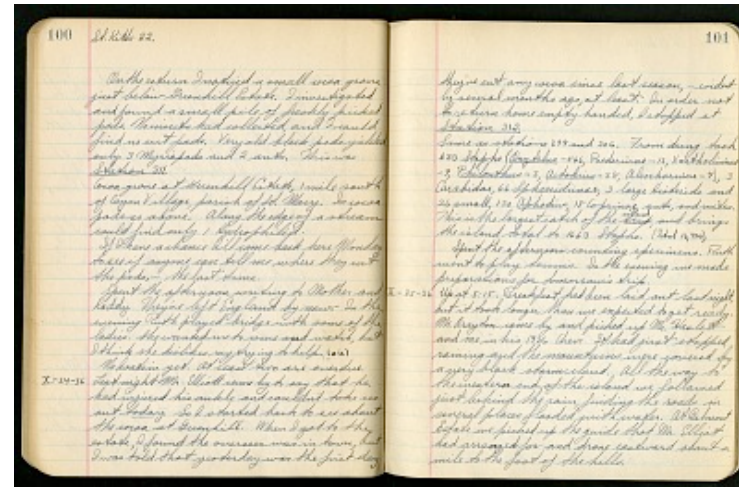 100
St. Kitts 22.
On the return I noticed a small cocoa grove
just below Brumhell Estate. I investigated
and found a small pile of freshly picked
pods. No insects had collected, and I could
find no cut pods. Very old black pods yielded
only 3 Myriapods and 2 ants. This was
Station 311
Cocoa grove at Estate, 1 mile south
of Cayon Village, parish of St. Mary. In cocoa
pods as above. Along the edge of a stream
could find only 1 Hydrophilid.
If I have a chance I'll come back here Monday
to see if anyone can tell me where they cut
the pods - the first time.
Spent the afternoon writing to Mother and
Daddy. They've left England by now. In the
evening Ruth played bridge with some of the
ladies. She wanted me to come and watch, but
I think she dislikes my trying to help.
No boat in yet. At least two are overdue.
X-24-36 Last night Mr. Elliott came back to say that he
had injured his ankle and couldn't take us
out today. So I started back to see about
the cocoa at . When I got to the
estate, I found the overseer was in town, but
I was told that yesterday was the first day
101
they've cut any cocoa since last season, - ended
by several months ago, at least. In order not
to return home empty handed, I stopped at
Station 312
Same as stations 299 and 206. From dung took
630 Staphs
Carabidae, 66 Sphaeridiinae, 3 large histerids and
26 small, 130 Aphodius, and mites.
This is the largest catch of the and brings
the island total to 1663 Staphs.
Spent the afternoon counting specimens. Ruth
went to play tennis. In the evening we made
preparations for tomorrow's trip.
X-25-36 Up at 5:15. Breakfast had been laid out last night
but it took longer than we expected to get ready.
Mr. came by and picked up Mr. 
and me in his 1936 Chev. It had just stopped
raining and the mountains were covered by
a very black storm cloud. All the way to
the western end of the island we followed
just behind the rain, finding the roads in
several places flooded with water. At Belmont
Estate we picked up the guide that Mr. Elliott
had arranged for and drove eastward about a
mile to the foot of the hills.